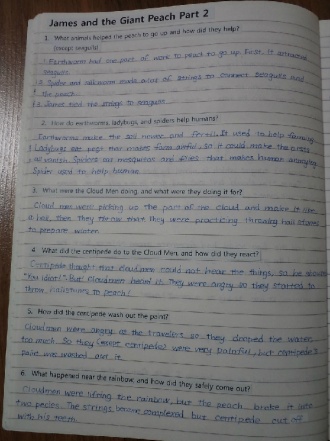 James and the Giant Peach Part 2
1. What animals helped the peach to go up and how did they help?
(except seagulls)
1. Earthworm had the part of work to peach to go up. First, it attractive
seagulls.
2. Spider and silkworm made a lot of strings to connect seagulls and
the peach.
3. James tied the strings to seagulls.
2. How do earthworms, ladybugs, and spiders help humans?
Earthworms make the soil move, and fertile. It used to help farming.
Ladybugs eat pests that makes farm awful, so it could make the pests
vanish. Spiders eat mosquitos and flies that makes human annoying.
Spider used to help human.
3. What were the Cloud Men doing, and what were they doing it for?
Cloud men were picking up the part of the cloud and make it like
a ball, then they throw that. They were practicing throwing hail stones
to prepare winter.
4. What did the centipede do to the Cloud Men, and how did they react?
Centipede thought that cloudmen could not hear the things, so he
"You idiot!" But cloudmen heard it. They were angry, so they started to
throw hailstones to peach!
5. How did the centipede wash out the paint?
Cloudmen were angry at the travelers, so they dropped the water
too much. So they (except centipede) were very painful, but centipede's
paint was washed out it.
6. What happened near the rainbow, and how did they safely come out?
Cloudmen were lifting the rainbow, but the peach broke it into
two pieces. The strings became complicated, but centipede cut off
with his teeth.